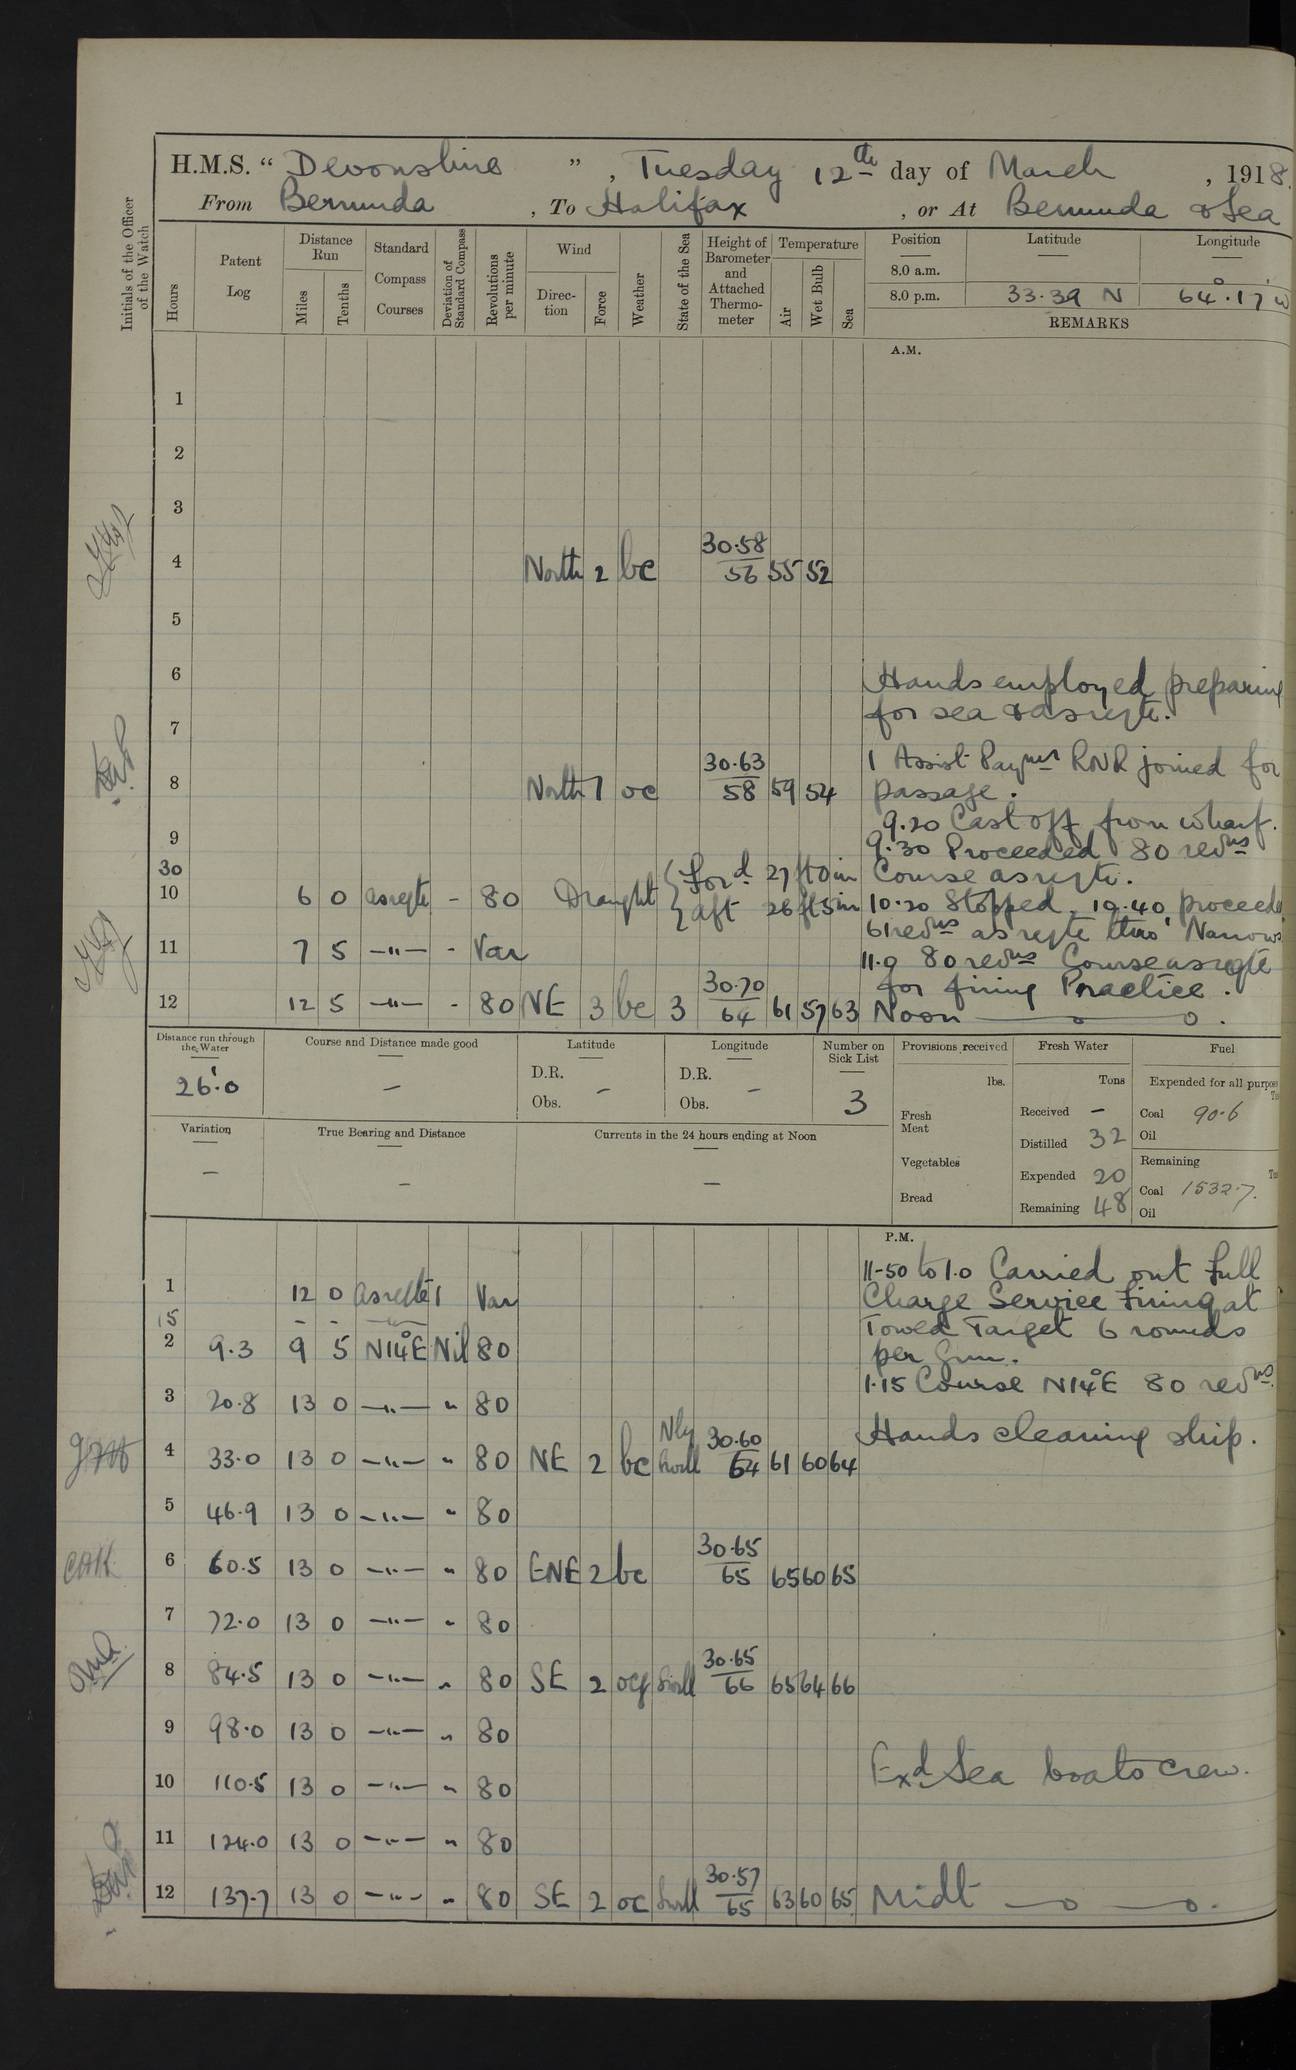 H.M.S. “ Devonshire ”, Tuesday 12th day of March , 1918.
From Bermuda , To Halifax , or At Bermuda & Sea
Initials of the Officer of the Watch
Hours
Patent Log
Distance Run
Miles
Tenths
Standard Compass Courses
Deviation of Standard Compass
Revolutions per minute
Wind
Direc-tion
Force
Weather
State of the Sea
Height of Barometer and Attached Thermo-meter
Temperature
Air
Wet Bulb
Sea
Position Latitude Longitude
8.0 a.m.
8.0 p.m. 33·39 N 64°·17' W
REMARKS
A.M.
1
2
3
4 North 2 bc 30·58/56 55 52
5
6 Hands employed preparing
7 for sea & as reqte.
1 Assist Paymr RNR joined for
8 North 1 oc 30·63/58 59 54 passage.
9.20 Cast off from wharf.
9 9.30 Proceeded 80 revns
30 Draught { Ford 27 ft 0 in Course as reqte.
10 6 0 as reqte - 80 { aft 26 ft 5 in 10.20 Stopped. 10.40 proceeded
61 revns as reqte thro' Narrows
11 7 5 —"— - Var 11.0 80 revns Course as reqte
for firing Practice.
12 12 5 —"— - 80 NE 3 bc 3 30·70/64 61 57 63 Noon
Distance run through the Water
26'·0
Course and Distance made good
—
Latitude
D.R. —
Obs.
Longitude
D.R. —
Obs.
Number on Sick List
3
Variation
—
True Bearing and Distance
—
Currents in the 24 hours ending at Noon
—
Provisions received
lbs.
Fresh Meat
Vegetables
Bread
Fresh Water
Tons
Received -
Distilled 32
Expended 20
Remaining 48
Fuel
Expended for all purpose
Coal 90·6
Oil
Remaining
Coal 1532·7.
Oil
P.M.
11-50 to 1.0 Carried out Full
1 12 0 as reqte 1 Var Charge Service Firing at
15 - - Towed Target 6 rounds
2 9·3 9 5 N14°E Nil 80 per Gun.
1.15 Course N14°E 80 revns.
3 20·8 13 0 —"— " 80
4 33·0 13 0 —"— " 80 NE 2 bc Nly Swell 30·60/64 61 60 64 Hands cleaning ship.
5 46·9 13 0 —"— " 80
6 60·5 13 0 —"— " 80 ENE 2 bc 30·65/65 65 60 65
7 72·0 13 0 —"— " 80
8 84·5 13 0 —"— " 80 SE 2 Swell 30·65/66 65 64 66
9 98·0 13 0 —"— " 80
10 110·5 13 0 —"— " 80 Exd Sea boats crew.
11 124·0 13 0 —"— " 80
12 137·7 13 0 —"— " 80 SE 2 oc Swell 30·57/65 63 60 65 Midt